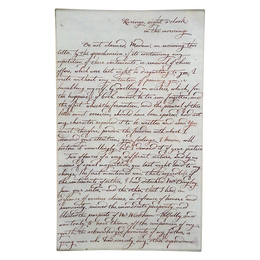 Rosings, eight o'clock
in the morning
Be not alarmed, Madam, on receiving this
letter, by the apprehension of its containing any
repetition of those sentiments, or renewal of those
offers, which were last night so disgusting to you. I
write without any intention of paining you, or
humbling myself, by dwelling on wishes, which, for
the happiness of both, cannot be too soon forgotten; and
the effort which the formation and the perusal of this
letter must occasion should have been spared, had not
my character required it to be written and read. You
must, therefore, pardon the freedom with which I
demand your attention; your feelings, I know, will
bestow it unwillingly, but I demand it of your justice.
Two offences of a very different nature, and by no
means of equal magnitude, you last night laid to my
charge. The first mentioned was, that, regardless of
the sentiments of either, I had detached Mr
your sister, and the other, that I had, in
defiance of various claims, in defiance of honour and
humanity, ruined the immediate prosperity and
blasted the prospects of Mr. Wickham. Wilfully and
wantonly to have thrown off the companion of my
youth, the acknowledged favourite of my father, a
young man who had scarcely any other dependence